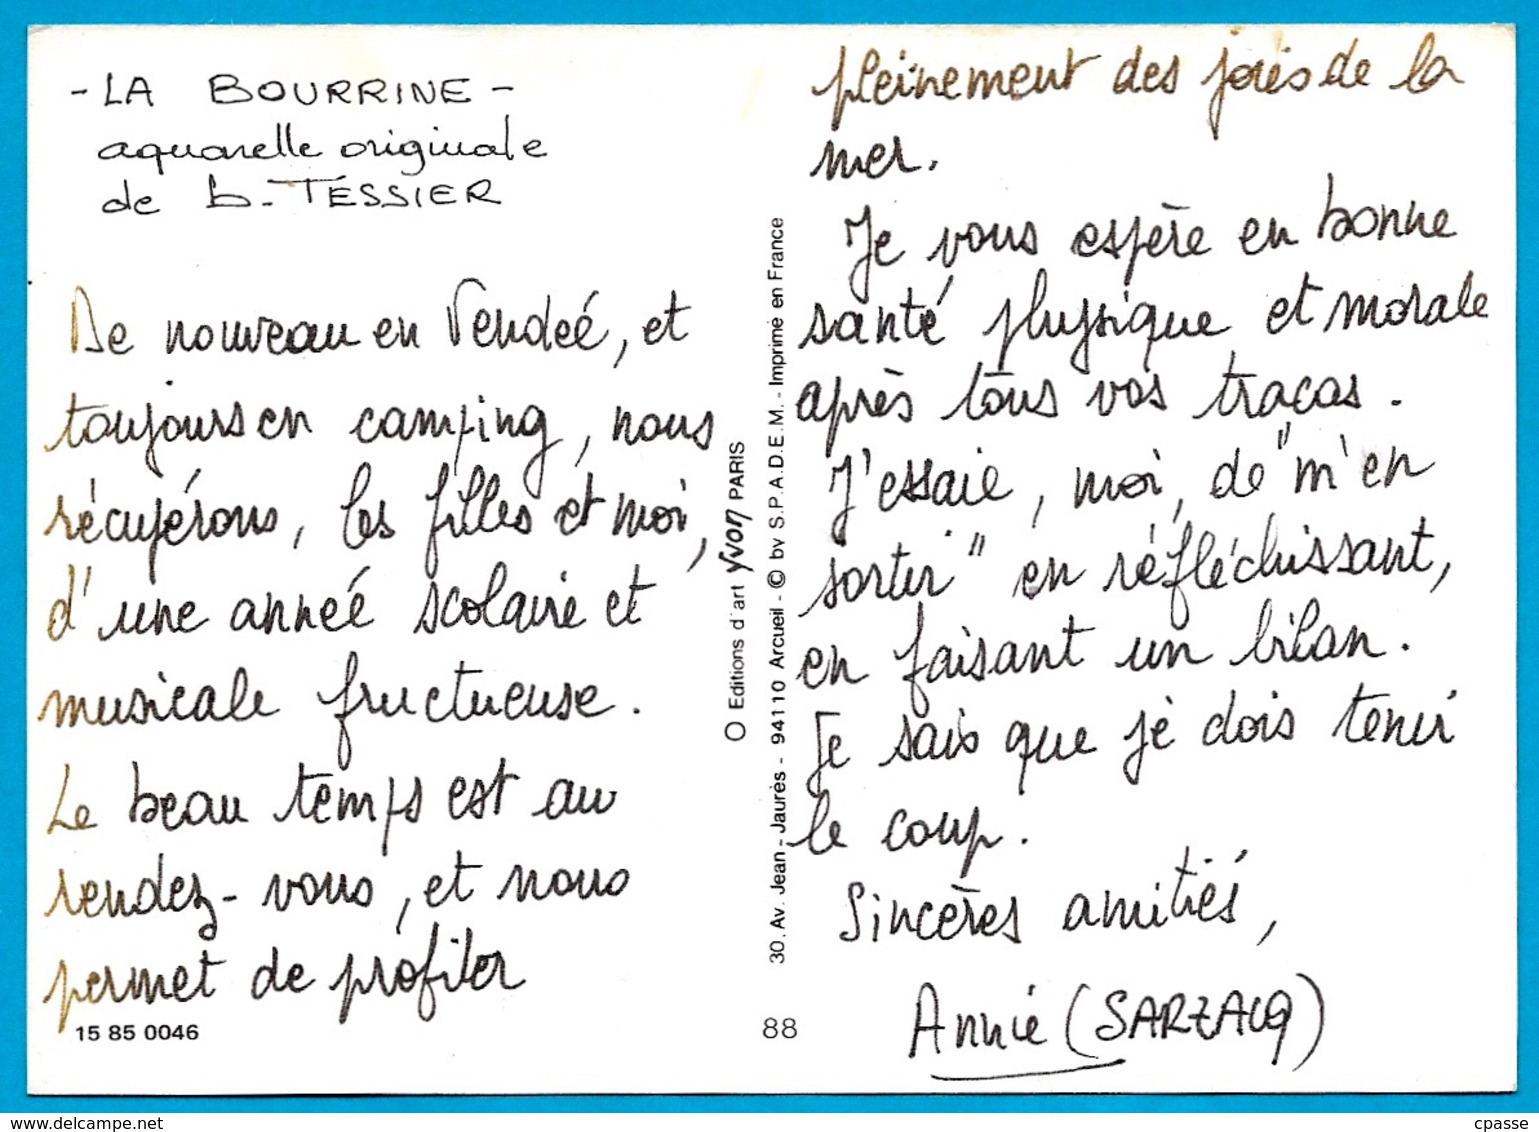 - LA BOURRINE -
aquarelle originale
de b. TESSIER
De nouveau en Vendée, et
toujours en camping, nous
récupérons, les filles et moi,
d'une année scolaire et
musicale fructueuse.
Le beau temps est au
rendez-vous, et nous
permet de profiter
15 85 0046
O Editions d'art yvon PARIS
30, Av. Jean - Jaurès - 94110 Arcueil - © by S.P.A.D.E.M. - Imprimé en France
88
pleinement des joies de la
mer.
Je vous espère en bonne
santé physique et morale
après tous vos tracas.
J'essaie, moi, de "m'en
sortir" en réfléchissant,
en faisant un bilan.
Je sais que je dois tenir
le coup.
Sincères amitiés,
Annie (SARZACQ)
cpasse